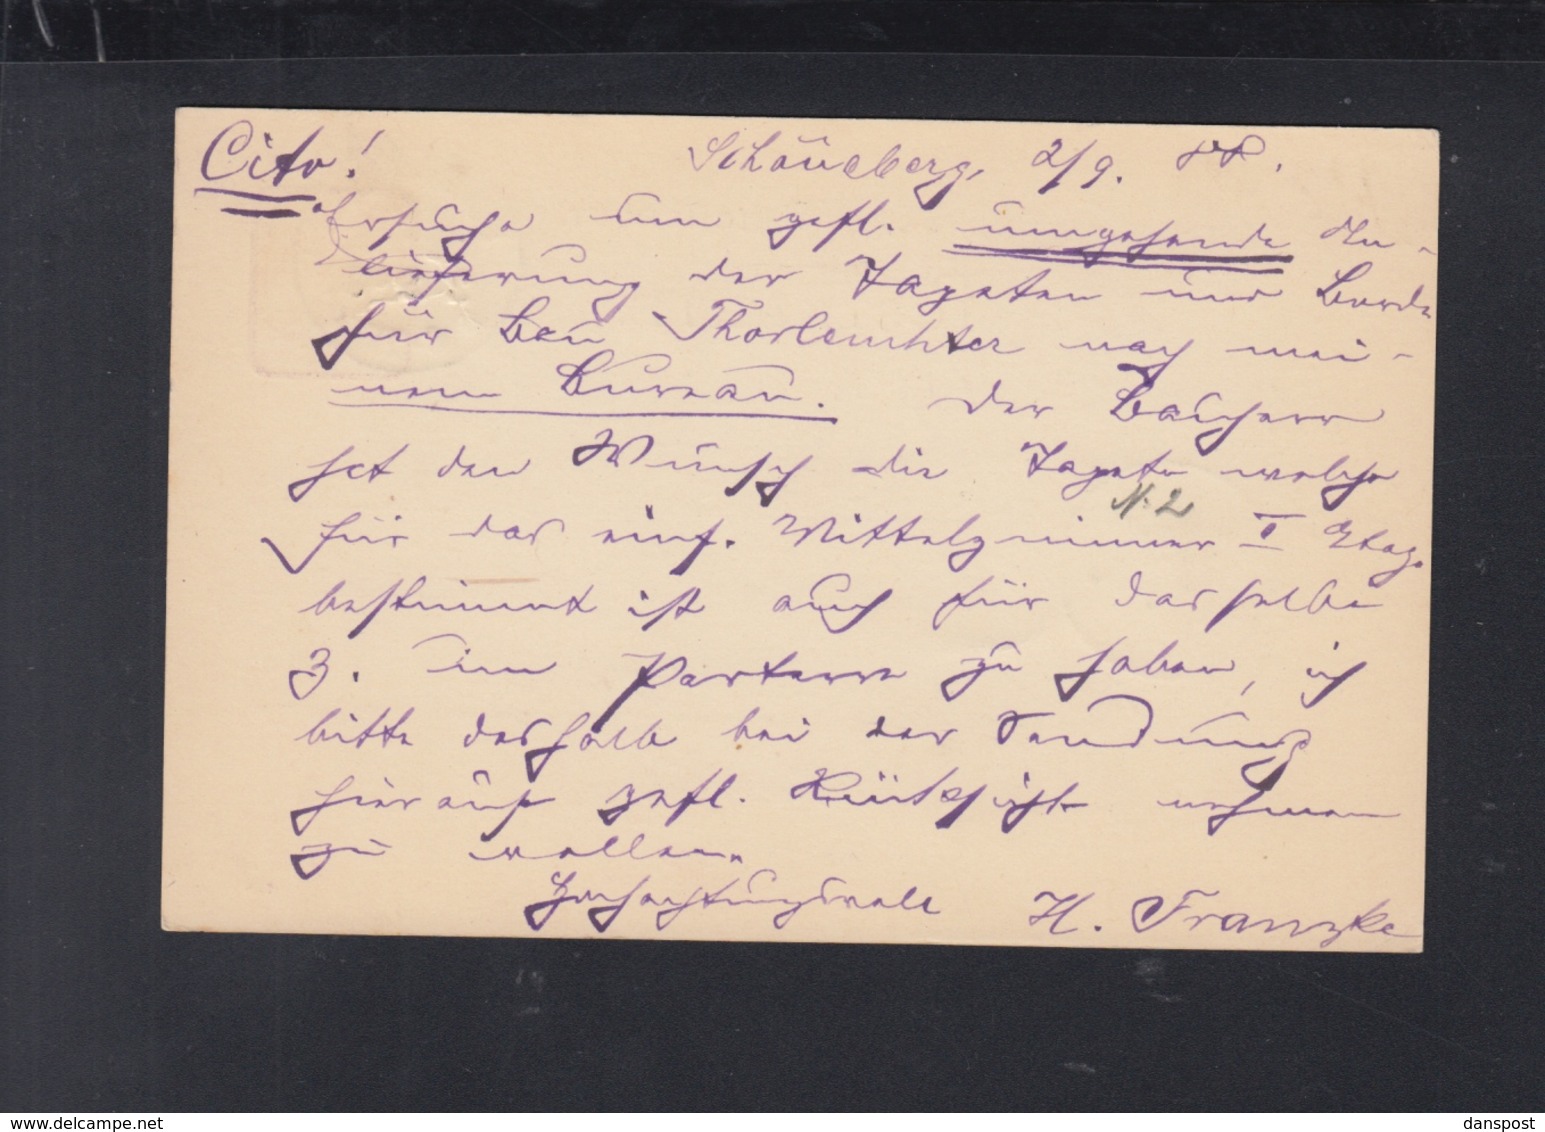 Cito! Schöneberg, 2/9. 88.
Ersuche um gefl. umgehende An-
lieferung der Tapeten und Borde
für Bau Thorleuchter nach mei-
nem Bureau. Der Bauherr
hat den Wunsch die Tapete welche
N. 2
für das einf. Mittelzimmer II Etag.
bestimmt ist auch für dasselbe
Z. im Parterre zu haben, ich
bitte deshalb bei der Sendung
hierauf gefl. Rücksicht nehmen
zu wollen.
Hochachtungsvoll H. Franzke
www.delcampe.net
danspost